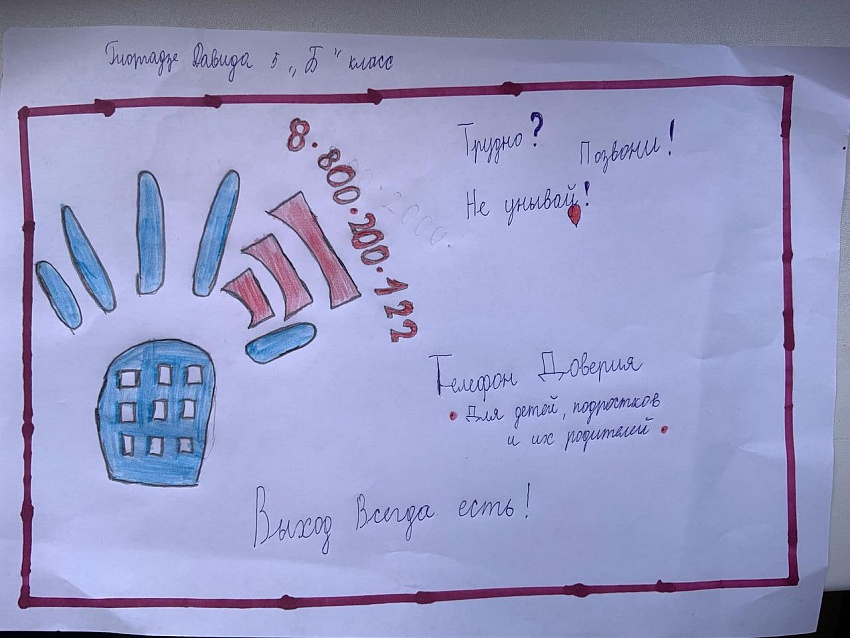 Давида 5 „Б" класс
8·800·200·122
Трудно? Позвони!
Не унывай!
Телефон Доверия
• Для детей, подростков
и их родителей •
Выход Всегда есть!